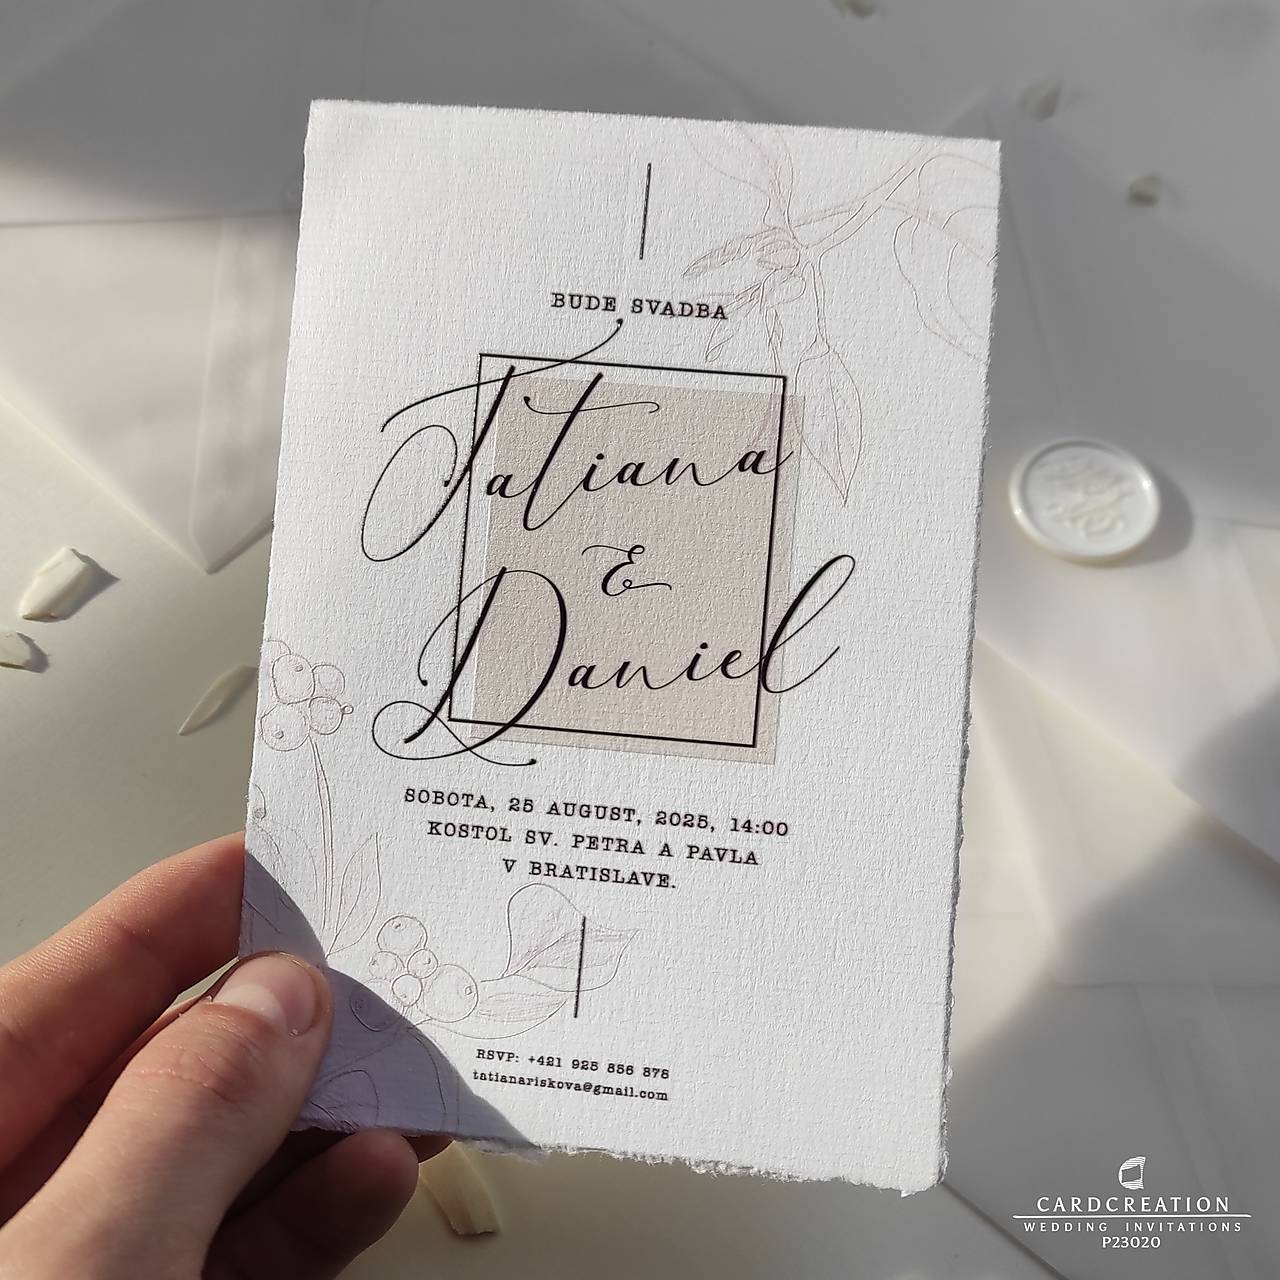 BUDE SVADBA
Tatiana
&
Daniel
SOBOTA, 25 AUGUST, 2025, 14:00
KOSTOL SV. PETRA A PAVLA
V BRATISLAVE.
RSVP: +421 925 856 878
tatianariskova@gmail.com
CARDCREATION
WEDDING INVITATIONS
P23020